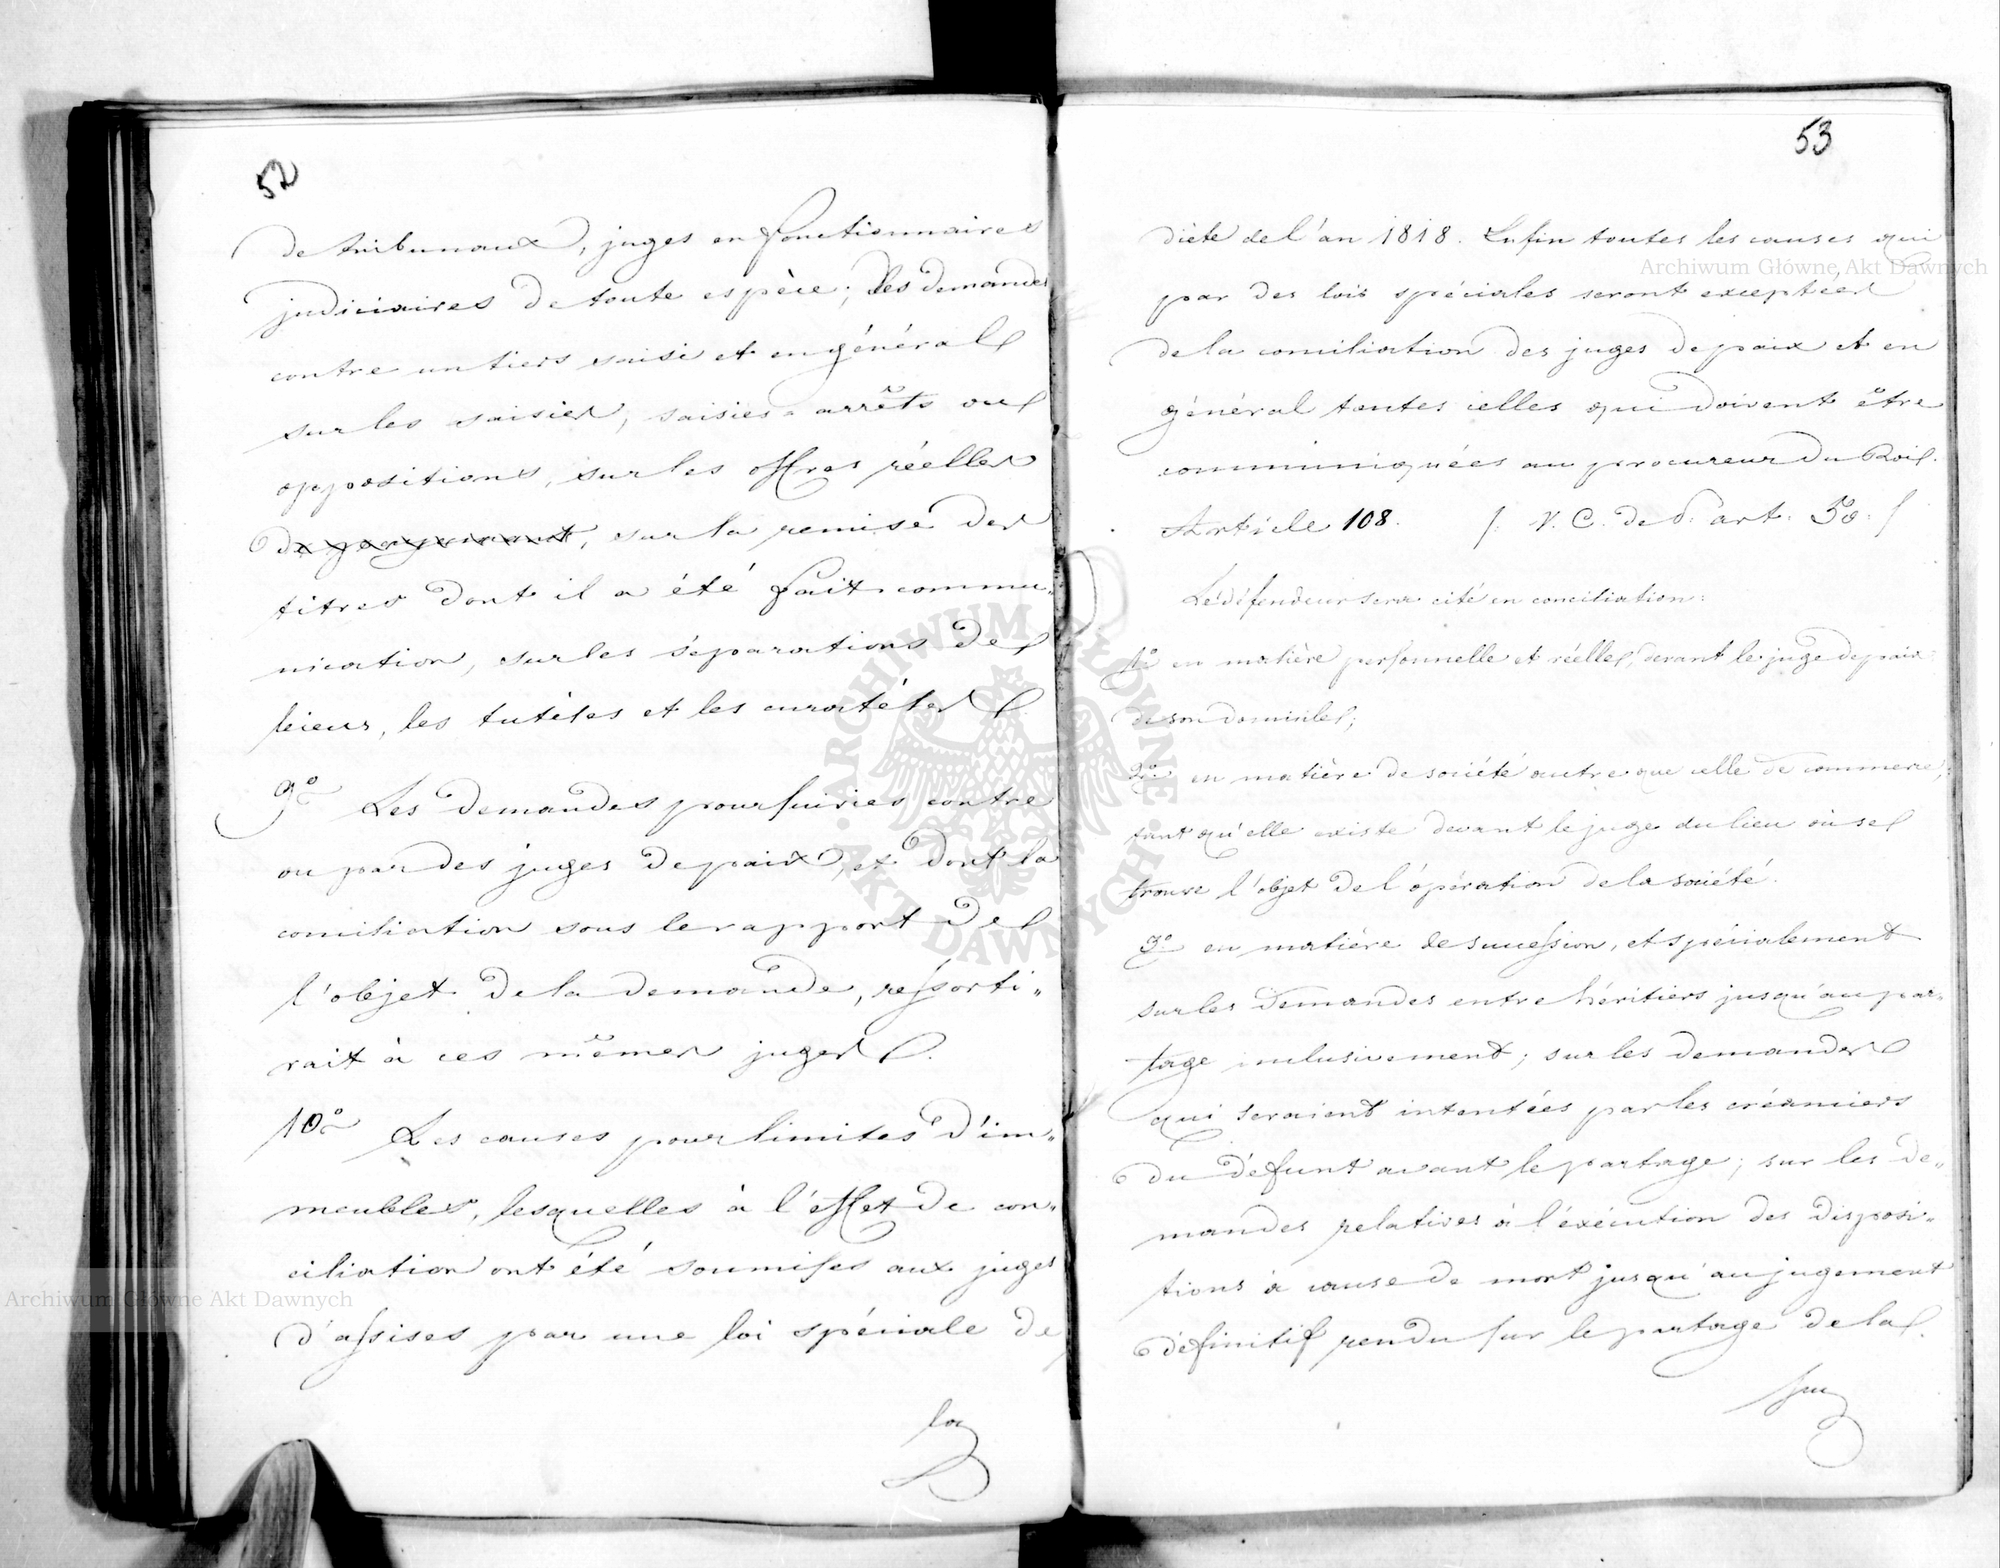 52
de tribunaux, juges en fonctionnaires
judiciaires de toute espèce; les demandes
contre un tiers saisi et en général
sur les saisies, saisies-arrêts ou
oppositions, sur les offres réelles
, sur la remise des
titres dont il a été fait commu„
nication, sur les séparations de
biens, les tutèles et les curatéles
9° Les demandes poursuivies contre
ou par des juges de paix, et dont la
conciliation sous le rapport de
l'objet de la demande, ressorti„
rait à ces mêmes juges.
10° Les causes pour limites d'im„
meubles, lesquelles à l'effet de con„
ciliation ont été soumises aux juges
d'assises par une loi spéciale de
la
53
diète de l'an 1818. Enfin toutes les causes qui
par des lois spéciales seront exceptées
de la conciliation des juges de paix et en
général toutes celles qui doivent être
communiquées au procureur du Roi.
Article 108. /. V. C. de d. art. 50. /
Le défendeur sera cité en conciliation:
1° en matière personnelle et réelle, devant le juge de paix
de son domicile;
2° en matière de société autre que celle de commerce,
tant qu'elle existe devant le juge du lieu où se
trouve l'objet de l'opération de la société.
3° en matière de succession, et spécialement
sur les demandes entre héritiers jusqu'au par„
tage inclusivement; sur les demandes
qui seraient intentées par les créanciers
du défunt avant le partage; sur les de„
mandes relatives à l'exécution des disposi„
tions à cause de mort jusqu'au jugement
définitif rendu sur le partage de la
suc
Archiwum Główne Akt Dawnych
Archiwum Główne Akt Dawnych
ARCHIWUM GŁÓWNE AKT DAWNYCH